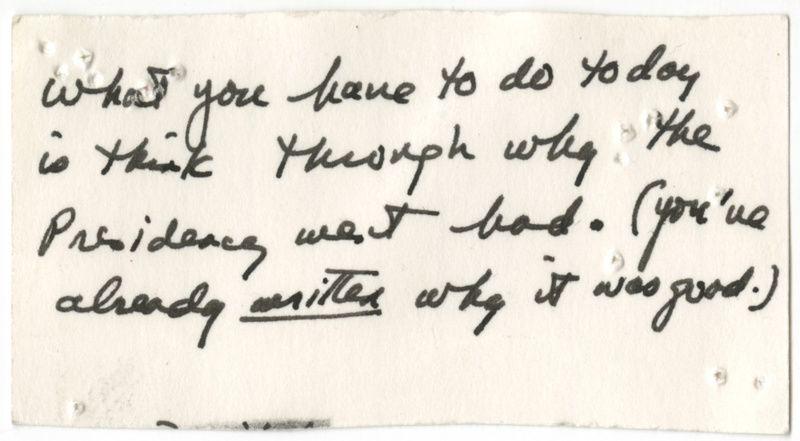 What you have to do today
is think through why the
Presidency went bad. (you've
already written why it was good.)